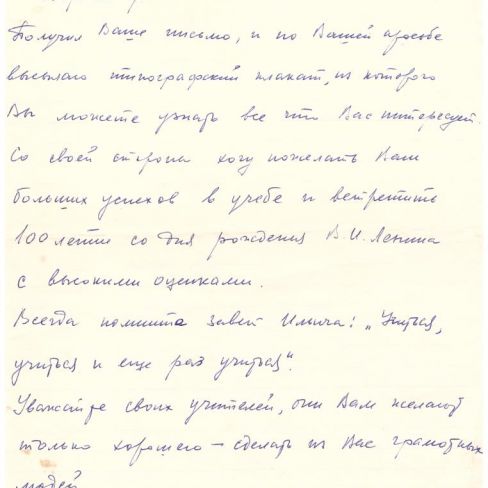 Получил Ваше письмо, и по Вашей просьбе
высылаю типографский плакат, из которого
Вы можете узнать все что Вас интересует.
Со своей стороны хочу пожелать Вам
больших успехов в учебе и встретить
100 летие со дня рождения В.И. Ленина
с высокими оценками.
Всегда помните завет Ильича: „Учиться,
учиться и еще раз учиться“.
Уважайте своих учителей, они Вам желают
только хорошего — сделать из Вас грамотных
людей